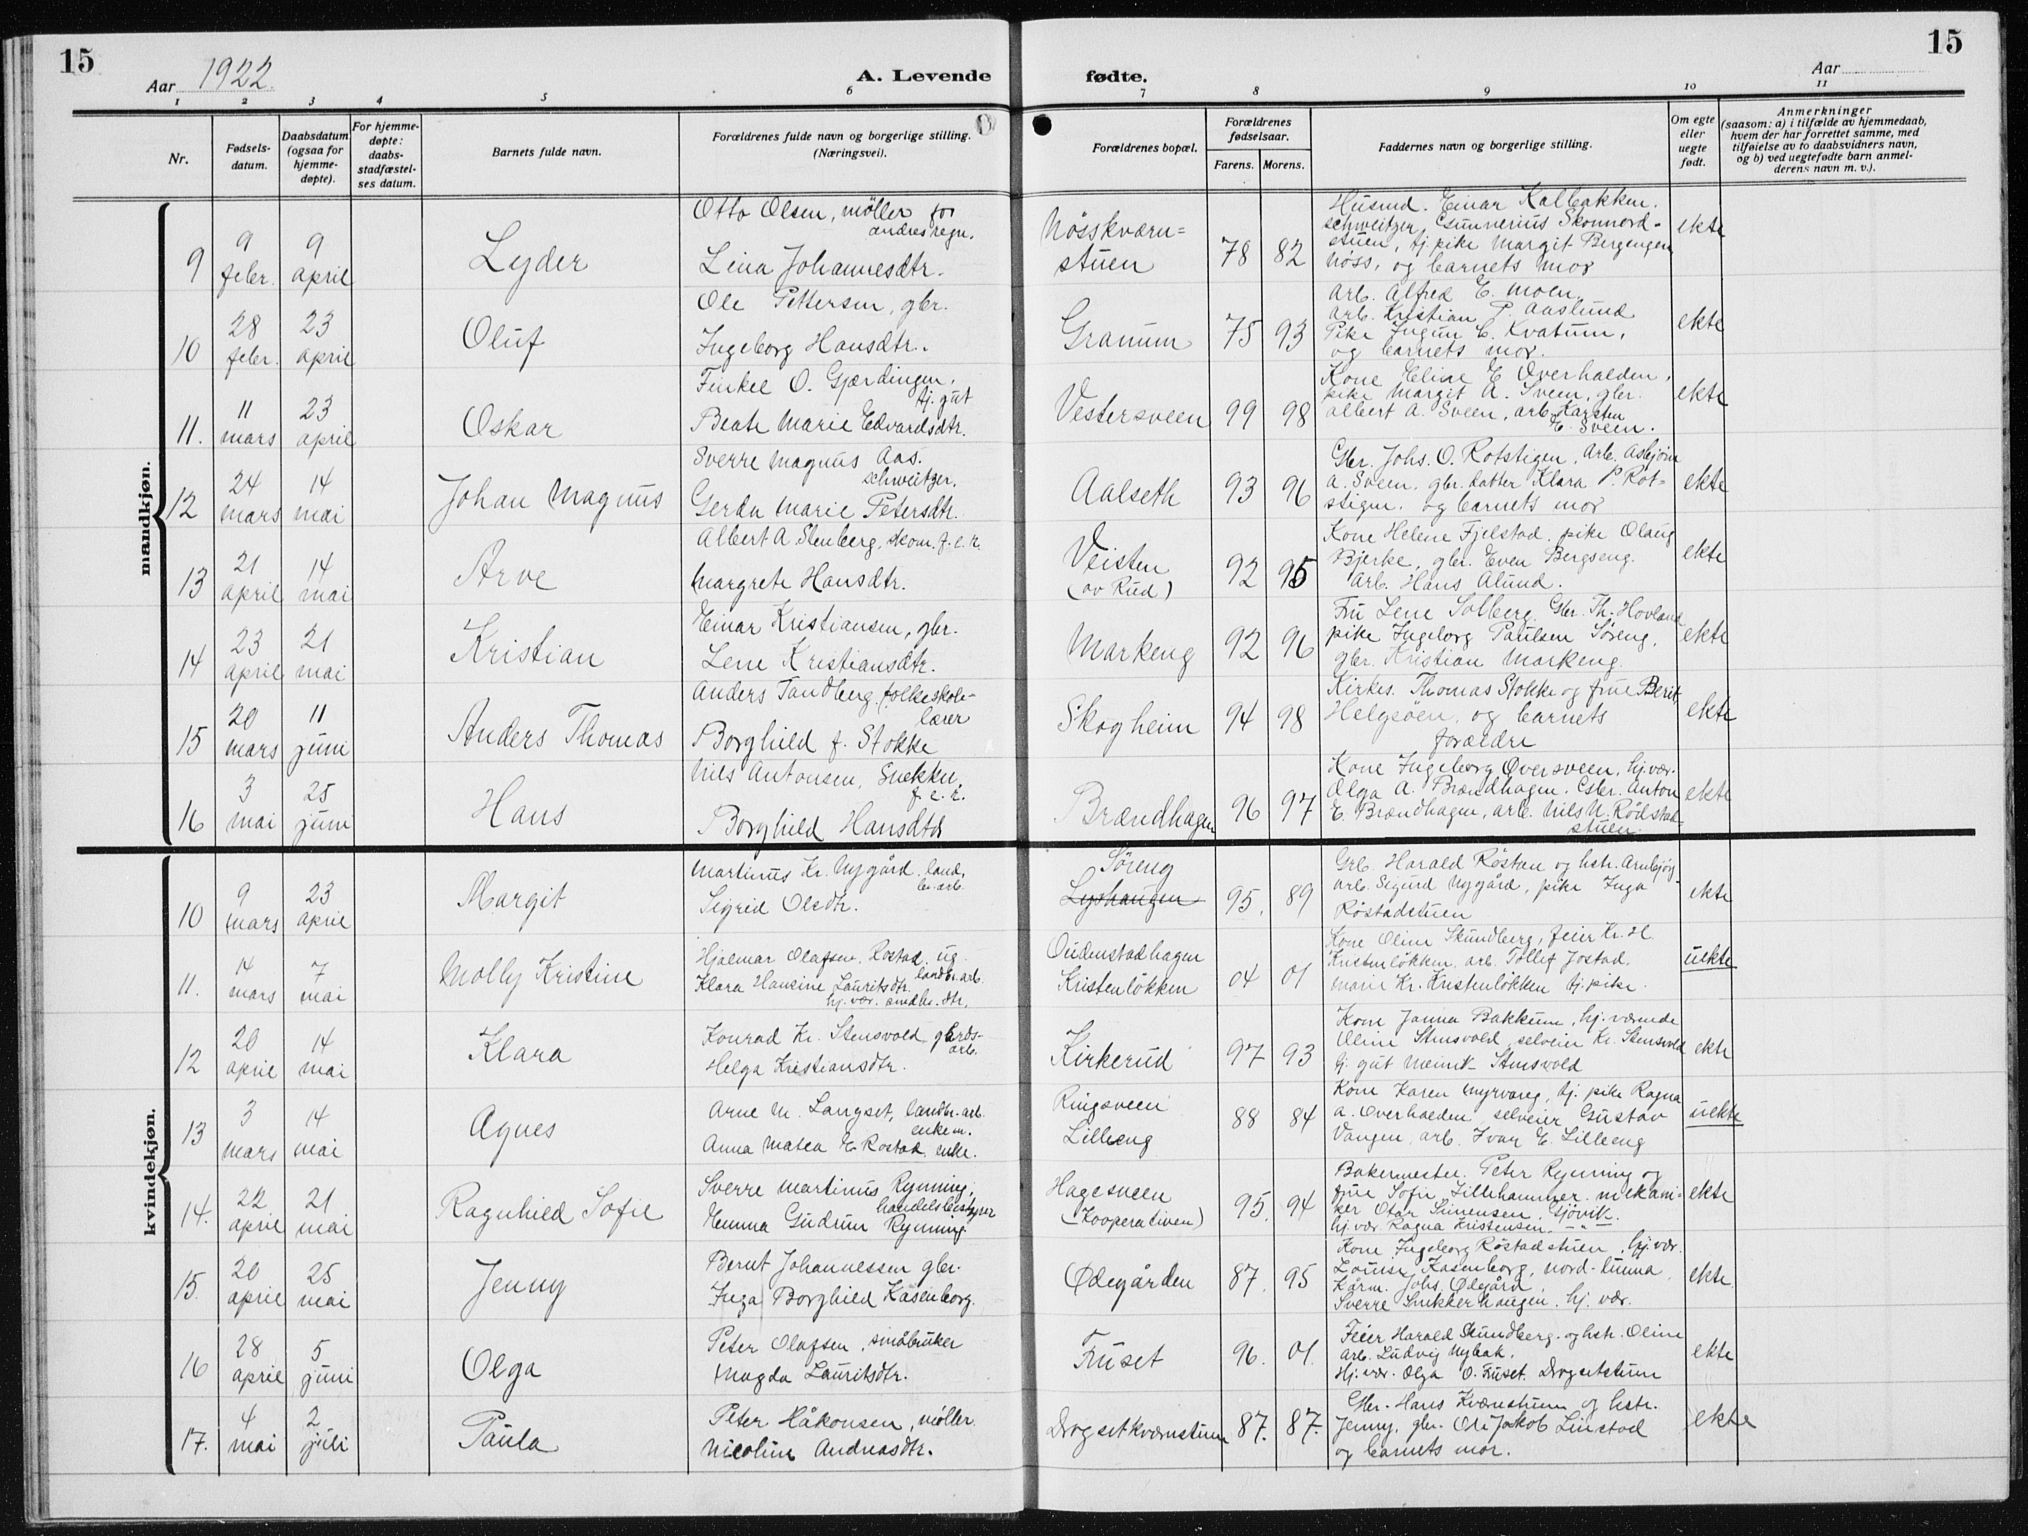 15
Aar 1922.
A. Levende
fødte.
Aar
15
1 2 3 4 5 6 7 8 9 10 11
Nr.
Fødsels-
datum.
Daabsdatum
(ogsaa for
hjemme-
døpte).
For hjemme-
døpte:
daabs-
stadfæstel-
ses datum.
Barnets fulde navn.
Forældrenes fulde navn og borgerlige stilling.
(Næringsvei).
Forældrenes bopæl.
Forældrenes
fødselsaar.
Farens. Morens.
Faddernes navn og borgerlige stilling.
Om egte
eller
uegte
født.
Anmerkninger
(saasom: a) i tilfælde av hjemmedaab,
hvem der har forrettet samme, med
tilføielse av to daabsvidners navn,
og b) ved uegtefødte barn anmel-
derens navn m. v.).
mandkjøn.
9
9 febr.
9 april
Lyder
Otto Olsen, møller for
andres regn.
Lina Johannesdtr.
Nösskværn=
stuen
78 82
Husmd. Einar Kalbakken.
schweitzer Gunnerius Skonnord-
stuen, tj. pike Margit Bergengen
Nöss, og barnets mor
ekte
10
28 febr.
23 april
Oluf
Ole Pettersen, gbr.
Ingeborg Hansdtr.
Granum
75 93
arb. Alfred E. Moen,
arb. Kristian P. Aaslund
Pike Ingun E. Kvatum,
og barnets mor.
ekte
11.
11 mars
23 april
Oskar
Tinkel O. Gjærdingen,
tj. gut
Beate Marie Edvardsdtr.
Vestersveen
99 98
Kone Elise E Overhalden,
pike Margit A. Sveen, gbr.
Albert A. Sveen, arb. Karsten
E. Sveen.
ekte
12
24 mars
14 mai
Johan Magnus
Sverre Magnus Aas.
schweitzer.
Gerda Marie Petersdtr.
Aalseth
93 96
Gbr. Johs. O. Rotstigen, Arb. Asbjörn
A. Sveen, gbr. datter Klara P. Rot=
stigen. og barnets mor
ekte
13
21 april
14 mai
Arve
Albert A Stenberg, skom. f. e. r.
Margrete Hansdtr.
Veisten
(av Rud)
92 95
Kone Helene Fjelstad. pike Olaug
Bjerke, gbr. Even Bergseng.
Arb. Hans Alund.
ekte
14
23 april
21 mai
Kristian
Einar Kristiansen, gbr.
Lene Kristiansdtr.
Markeng
92 96
Fru Lene Solberg, Gbr. Th. Hovland
pike Ingeborg Paulsen Søreng,
gbr. Kristian Markeng.
ekte
15
20 mars
11 juni
Anders Thomas
Anders Tandberg, folkeskole-
lærer
Borghild f. Stokke
Skogheim
94 98
Kirkes. Thomas Stokke og frue Berit
Helgsöen, og barnets
forældre
ekte
16
3 mai
25 juni
Hans
Nils Antonsen, Snekker,
f. e. r.
Borghild Hansdtr
Brændhagen
96 97
Kone Ingeborg Øversveen, hj. vær.
Olga A. Brændhagen. Gbr. Anton
E. Brændhagen, arb. Nils N. Rödstad-
stuen.
ekte
kvindekjøn.
10
9 mars
23 april
Margit
Martinus Kr. Nygård. land.
br. arb.
Sigrid Olsdtr.
Søreng
Lyshaugen
95. 89
Grb. Harald Røsten og hstr. Arnbjørg
arb. Sigurd Nygård, pike Inga
Röstadstuen
ekte
11.
14 mars
7 mai
Molly Kristine
Hjalmar Olafsen, Rostad. ug.
landbr. arb.
Klara Hansine Lauritsdtr.
hj. vær. småbr. dtr,
Oudenstadhagen
Kristenløkken
04 01
Kone Oline Skundberg, feier Kr. H.
Kristenløkken, arb. Tollef Jostad.
Marie Kr. Kristenløkken tj. pike.
uekte
12
20 april
14 mai
Klara
Konrad Kr. Stensvold gårds-
arb.
Helga Kristiansdtr.
Kirkerud
97 93
Kone Janna Bakkum, hj. værende
Oline Stensvold, selveier Kr. Stensvold
tj. gut Meinik Stensvold
ekte
13
3 mars
14 mai
Agnes
Arne M. Langset, landbr. arb.
enkem.
Anna Matea E Rostad enke.
Ringsveen
Lilleeng
88 84
Kone Karen Myrvang, tj. pike Ragna
A. Overhalden, selveier Gustav
Vangen, arb. Ivar E. Lilleeng
uekte
14.
22 april
21 mai
Ragnhild Sofie
Sverre Martinus Rynning,
handelsbestyrer
Hemma Gudrun Rynning.
Hagesveen
(Kooperativen)
95. 94
Bakermester. Peter Rynning og
frue Sofie Lillehammer. mekani-
ker Otar Simensen, Gjövik.
hj. vær. Ragna Kristensen - " -
ekte
15.
20 april
25 mai
Jenny
Bernt Johannessen gbr.
Inga Borghild Kåsenborg.
Ødegården
87. 95
Kone Ingeborg Röstadstuen, hj. vær.
Louise Kåsenborg, Nord-Lunna,
Kårm. Johs. Ødegård,
Sverre Snekkerhaugen, hj. vær.
ekte.
16
28 april
5 juni
Olga
Peter Olafsen, småbruker
Magda Lauritsdtr.
Fruset
96. 01.
Feier Harald Skundberg. og hstr. Oline
arb. Ludvig Nybak.
Hj. vær. Olga O. Fruset. Drogsetstuen
ekte
17.
4 mai
2 juli
Paula
Peter Håkonsen, möller.
Nicoline Andreasdtr.
Drogsetkværnstuen
87. 87.
Gbr. Hans Kvænstuen og hstr.
Jenny, gbr. Ole Jakob Linstad
og barnets mor.
ekte